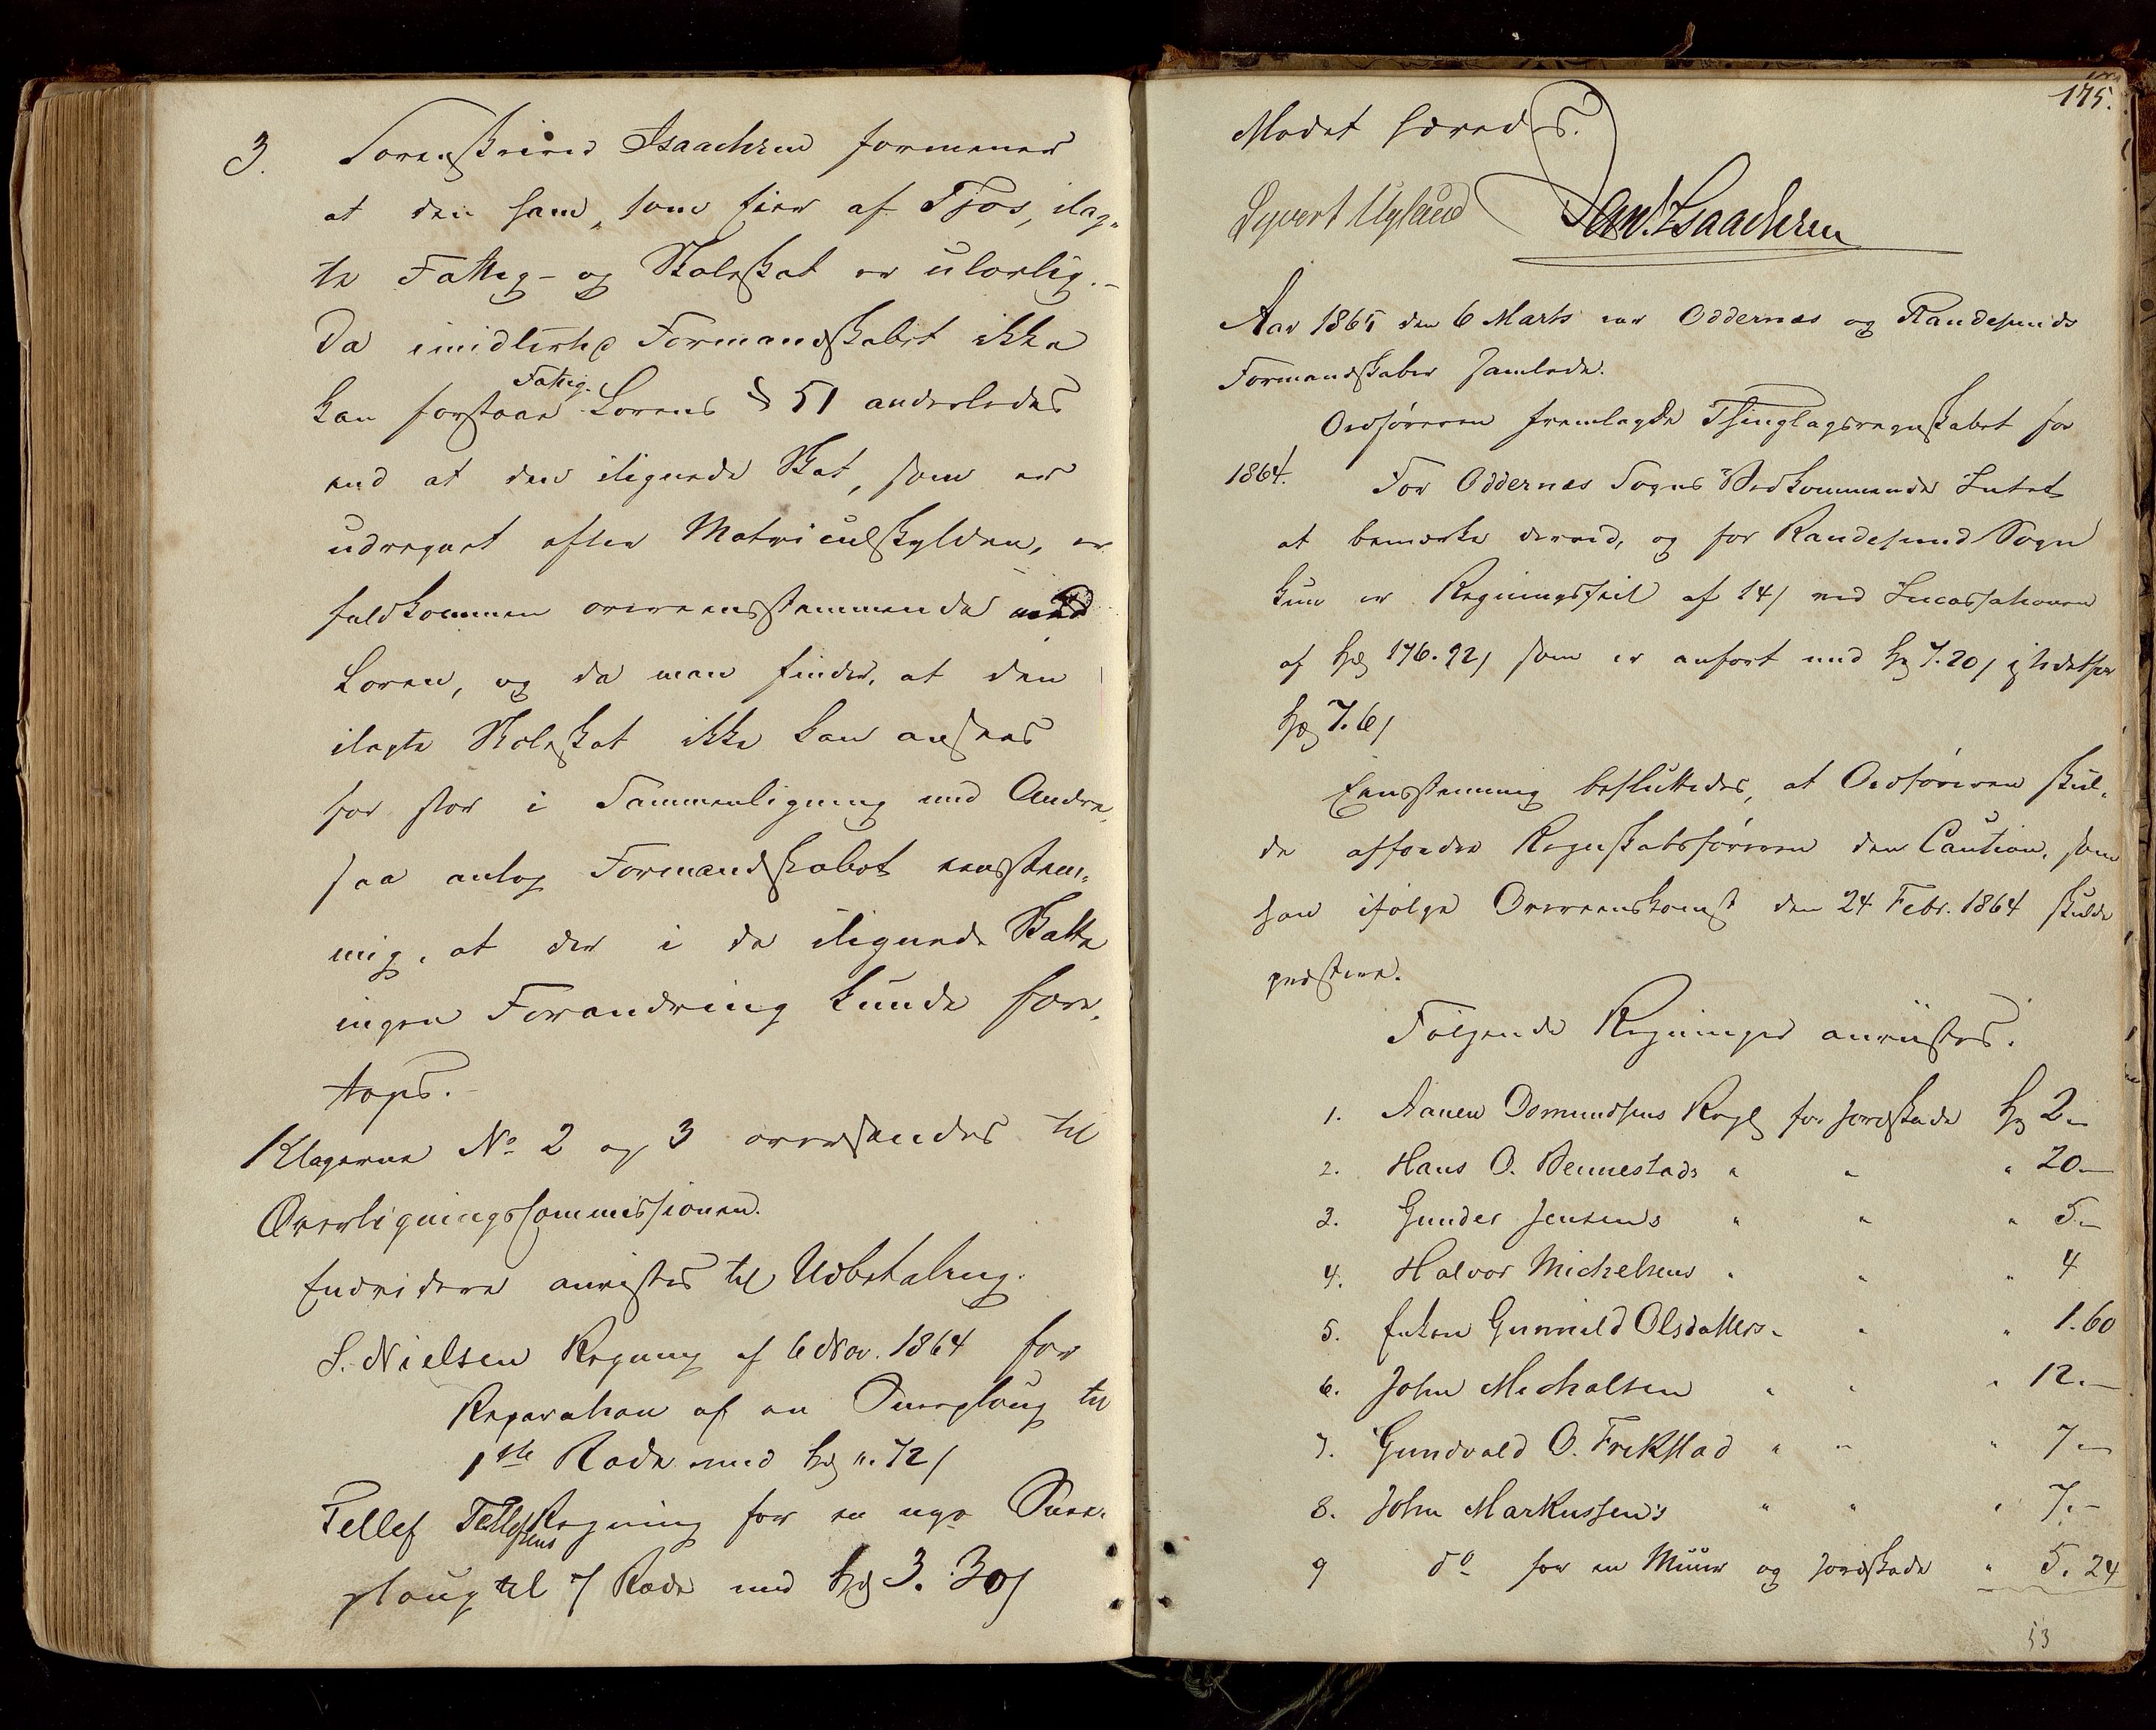 3. Sorenskriver Isaachsen formener
at den ham, som Eier af Tjos, ilag-
te Fattig- og Skoleskat er ulovlig.-
Da imidlertid Formandskabet ikke
kan forstaae Fattig-Lovens § 51 anderledes
end at den ilignede Skat, som er
udregnet efter Matriculskylden, er
fuldkommen overeensstemmende med
Loven, og da man finder, at den
ilagte Skoleskat ikke kan ansees
for stor i Sammenligning med Andre,
saa antog Formandskabet eensstem-
mig, at der i de ilignede Skatte
ingen Forandring kunde fore-
tages.-
Klagerne No 2 og 3 oversendes til
Overligningscommissionen.
Endvidere anvistes til Udbetaling.
S. Nielsen Regning af 6 Nov. 1864 for
Reparation af en Sneeploug til
1ste Rode med Spd ". 72 s
Tellef Tellefsens Regning for en nye Snee-
ploug til 7 Rode med Spd 3. 30 s
175.
Mødet hævedes.
Syvert Uglund Dan. Isaachsen
Aar 1865 den 6 Marts var Oddernes og Randesunds
Formandskaber samlede.
Ordføreren fremlagde Thinglagsregnskabet for
1864. For Oddernes Sogns Vedkommende Intet
at bemærke derved, og for Randesund Sogn
kun er Regningsfeil af 14 s ved Incassationen
af Spd 176. 92 s som er anført med Spd 7. 20 s istedetfor
Spd 7. 6 s
Eensstemmig besluttedes, at Ordføreren skul-
de affordre Regnskabsføreren den Caution, som
han ifølge Overeenskomst den 24 Febr. 1864 skulde
præstere.
Følgende Regninger anviistes.
1. Aanen Osmundsens Regg for Jordskade Spd 2 "
2. Hans O. Bennestads " " " 20 "
3. Gunder Jensens " " " 5 "
4. Halvor Michelsens " " " 4
5. Enken Gunnild Olsdatters " " " 1. 60
6. John Michalsen " " " 12 "
7. Gundvald O. Frekstad " " " 7 "
8. John Markussens " " " 7 "
9 do for en Muur og Jordskade " 5. 24
53